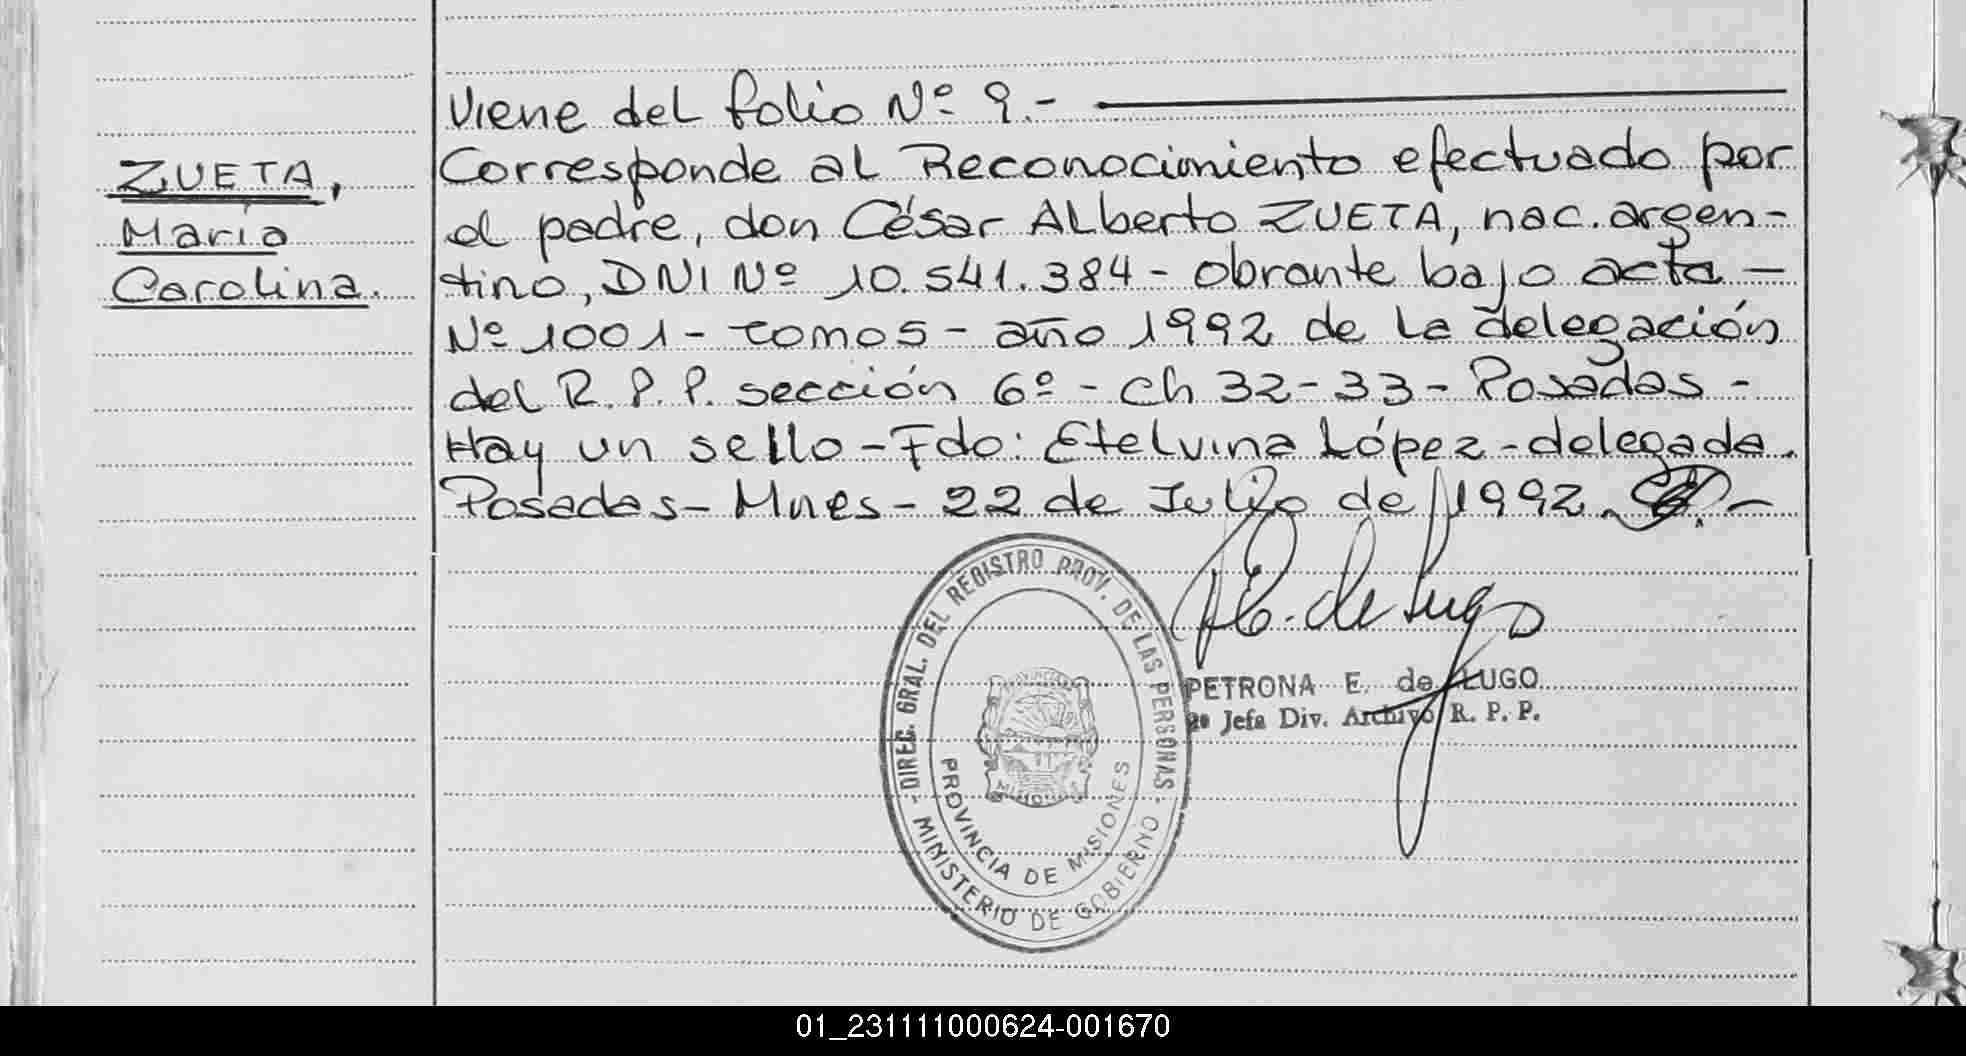 Viene del folio Nº 9.-
ZUETA,
María
Carolina.
Corresponde al Reconocimiento efectuado por
el padre, don César Alberto ZUETA, nac. argen-
tino, DNI Nº 10.541.384 - obrante bajo acta -
Nº 1001 - tomo 5 - año 1992 de la delegación
del R.P.P. sección 6º - Ch 32-33 - Posadas -
Hay un sello - Fdo: Etelvina López - delegada.
Posadas - Mnes - 22 de Julio de 1992.-
P.E. de Lugo
PETRONA E. de LUGO
2º Jefa Div. Archivo R. P. P.
- DIREC. GRAL. DEL REGISTRO PROV. DE LAS PERSONAS -
MINISTERIO DE GOBIERNO
PROVINCIA DE MISIONES
01_231111000624-001670